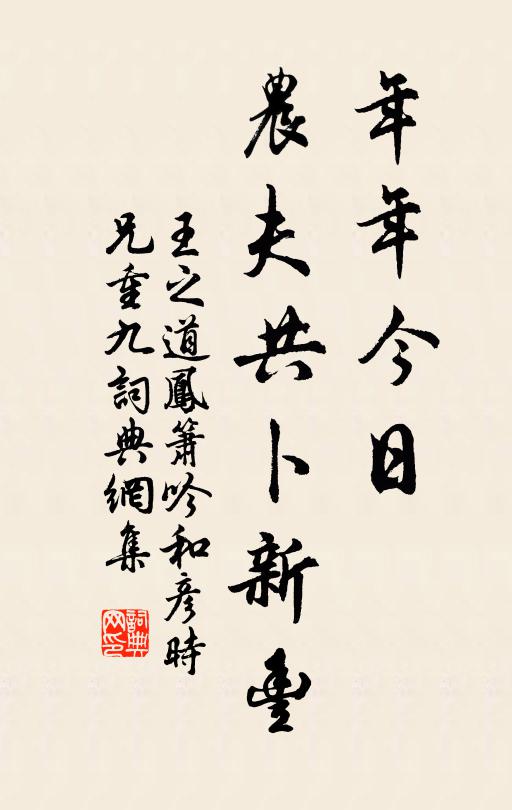 年年今日
農夫共卜新豐
王之道鳳簫吟和彥時
兄重九詞典網集
詞典
网印